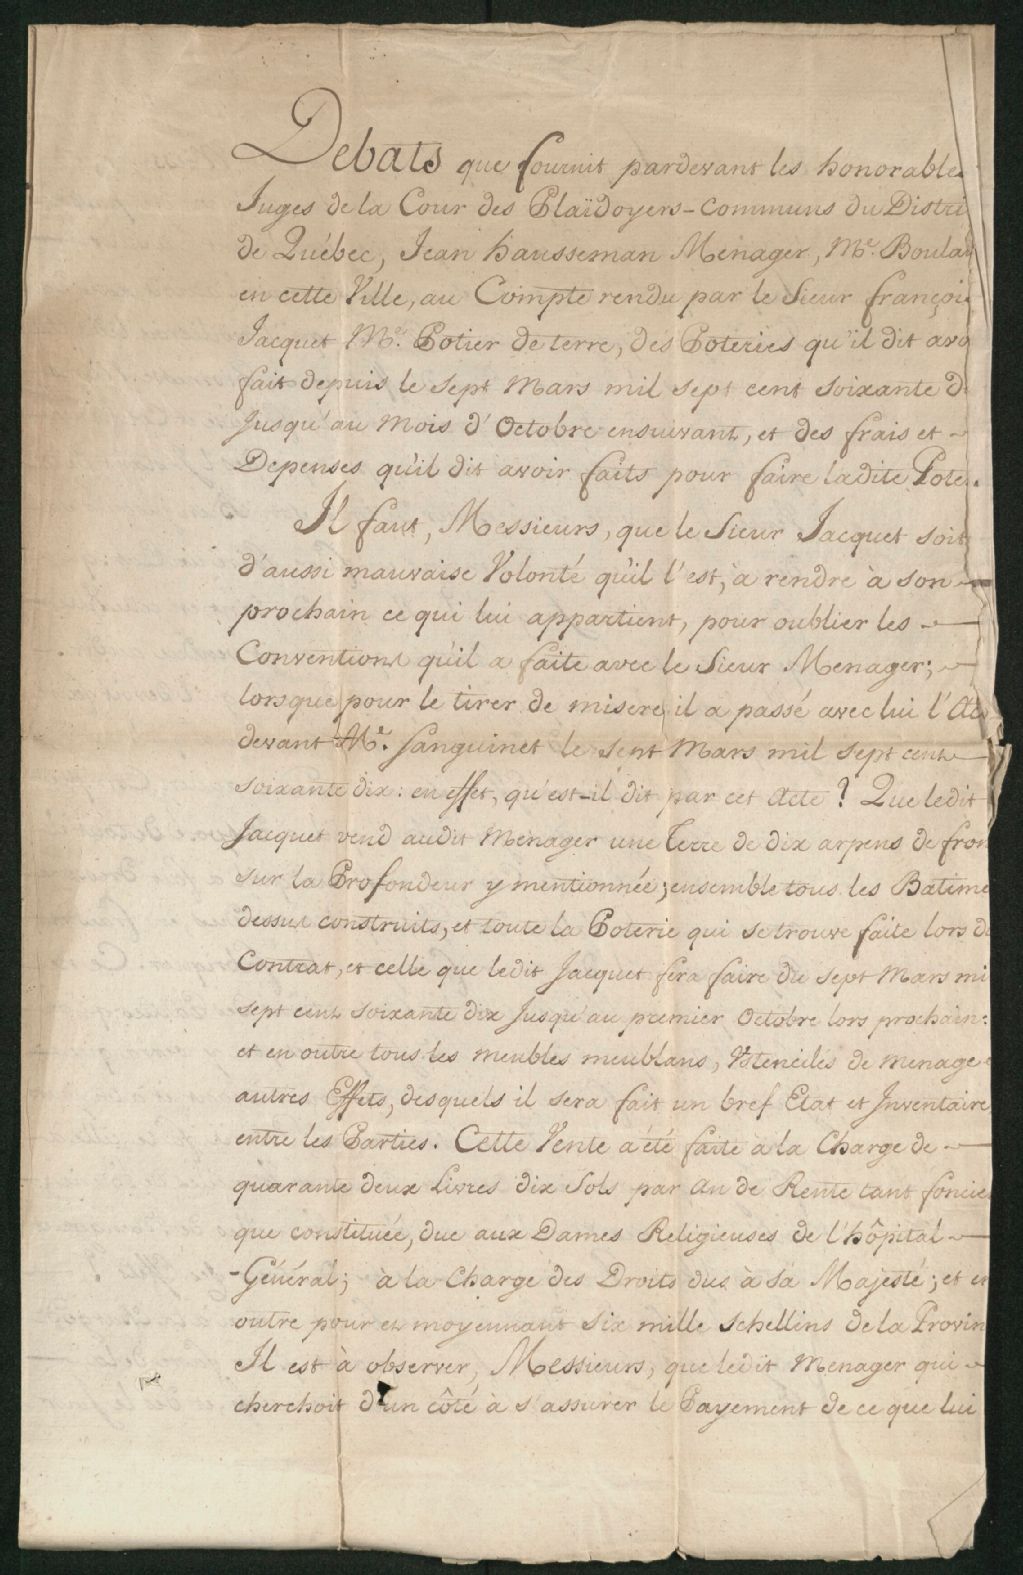 Debats que fournit pardevant les honorables
Juges de la Cour des Plaïdoyers-communs du Distri
de Québec, Jean hausseman Menager, Me. Boulan
en cette Ville, au Compte rendu par le Sieur françois
Jacquet Me. Potier de terre, des Poteries qu'il dit avo
fait depuis le sept Mars mil sept cent soixante d
Jusqu'au Mois d'Octobre ensuivant, et des frais et
Depenses qu'il dit avoir faits pour faire ladite Pote
Il faut, Messieurs, que le Sieur Jacquet soit
d'aussi mauvaise Volonté qu'il l'est, à rendre à son
prochain ce qui lui appartient, pour oublier les
Conventions qu'il a faite avec le Sieur Menager;
lorsque pour le tirer de misere il a passé avec lui l'Ac
devant Me. Sanguinet le sept Mars mil sept cent
soixante dix: en effet, qu'est-il dit par cet Acte? Que ledit
Jacquet vend audit Menager une Terre de dix arpens de fron
sur la Profondeur y mentionnée; ensemble tous les Batime
dessus construits, et toute la Poterie qui se trouve faite lors d
Contrat, et celle que ledit Jacquet fera faire du sept Mars mi
sept cent soixante dix Jusqu'au premier Octobre lors prochain:
et en outre tous les meubles meublans, Ustenciles de menage e
autres Effets, desquels il sera fait un bref Etat et Inventaire
entre les Parties. Cette Vente a été faite a la Charge de
quarante deux Livres dix Sols par An de Rente tant foncie
que constituée, due aux Dames Religieuses de l'hôpital
-Général; à la Charge des Droits dus à Sa Majesté; et en
outre pour et moyennant six mille schellins de la Provin
Il est à observer, Messieurs, que ledit Menager qui
cherchoit d'un côté à s'assurer le Payement de ce que lui